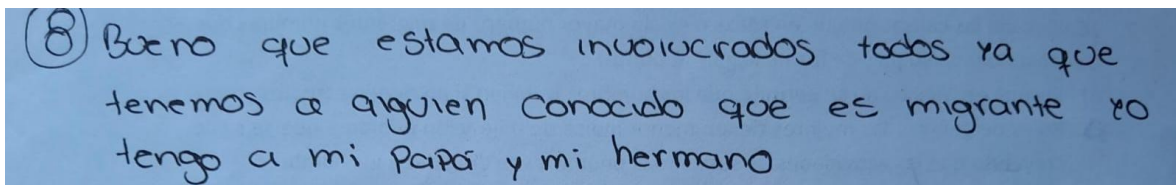 8 Bueno que estamos involucrados todos ya que
tenemos a alguien conocido que es migrante yo
tengo a mi papá y mi hermano